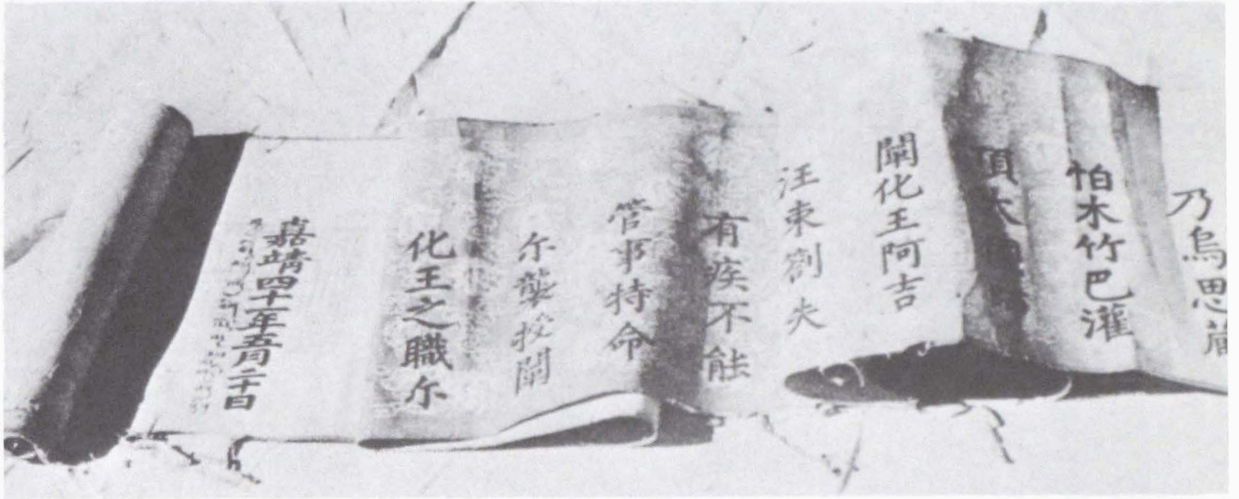 乃烏思藏
怕木竹巴灌
頂大國
闡化王阿吉
汪束劄失
有疾不能
管事特命
尔襲授闡
化王之職尔
嘉靖四十一年五月二十日